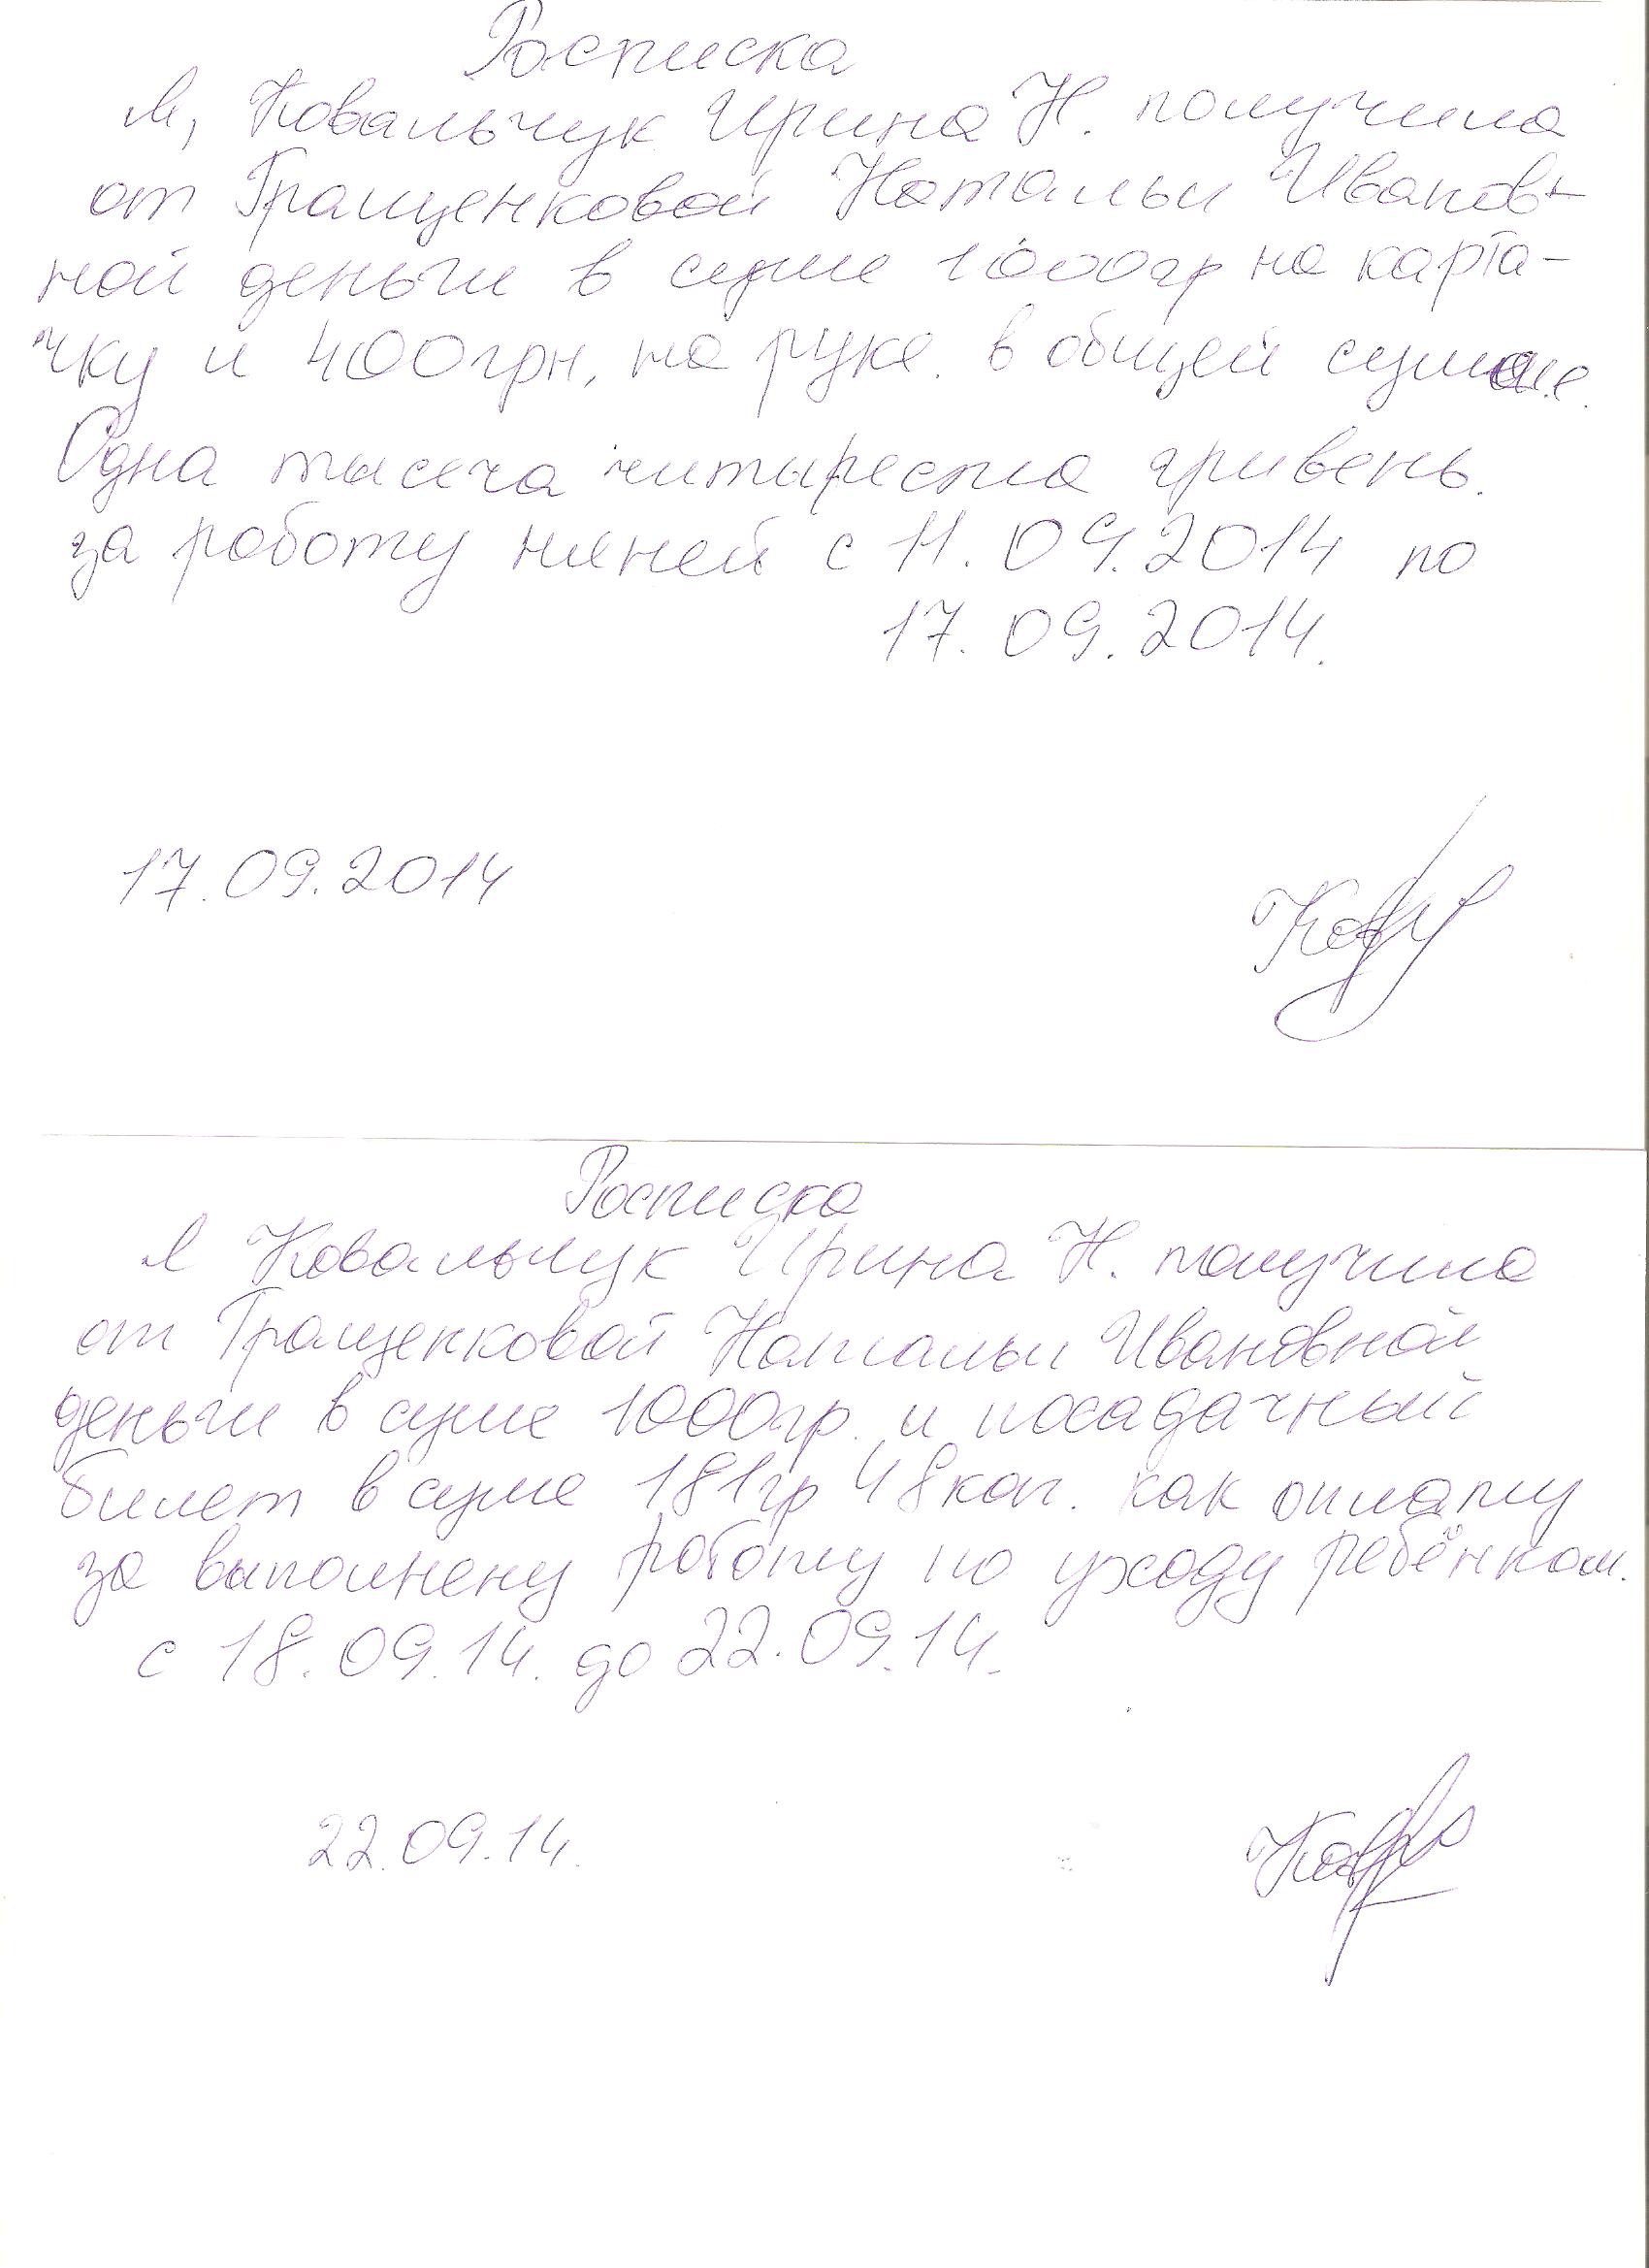 Росписка
Я, Ковальчук Ирина Н. получила
от Гращенковой Натальи Иванов-
ной деньги в суме 1000гр на карта-
чку и 400грн, на руке. в общей сумме.
Одна тысеча читыреста гривень.
за роботу няней с 11.09.2014 по
17.09.2014.
17.09.2014
Росписка
Я Ковальчук Ирина Н. получила
от Гращенковой Натальи Ивановной
деньги в суме 1000гр. и посадачный
билет в суме 181гр 48коп. как оплату
за выполнену роботу по уходу ребёнком.
с 18.09.14. до 22.09.14.
22.09.14.